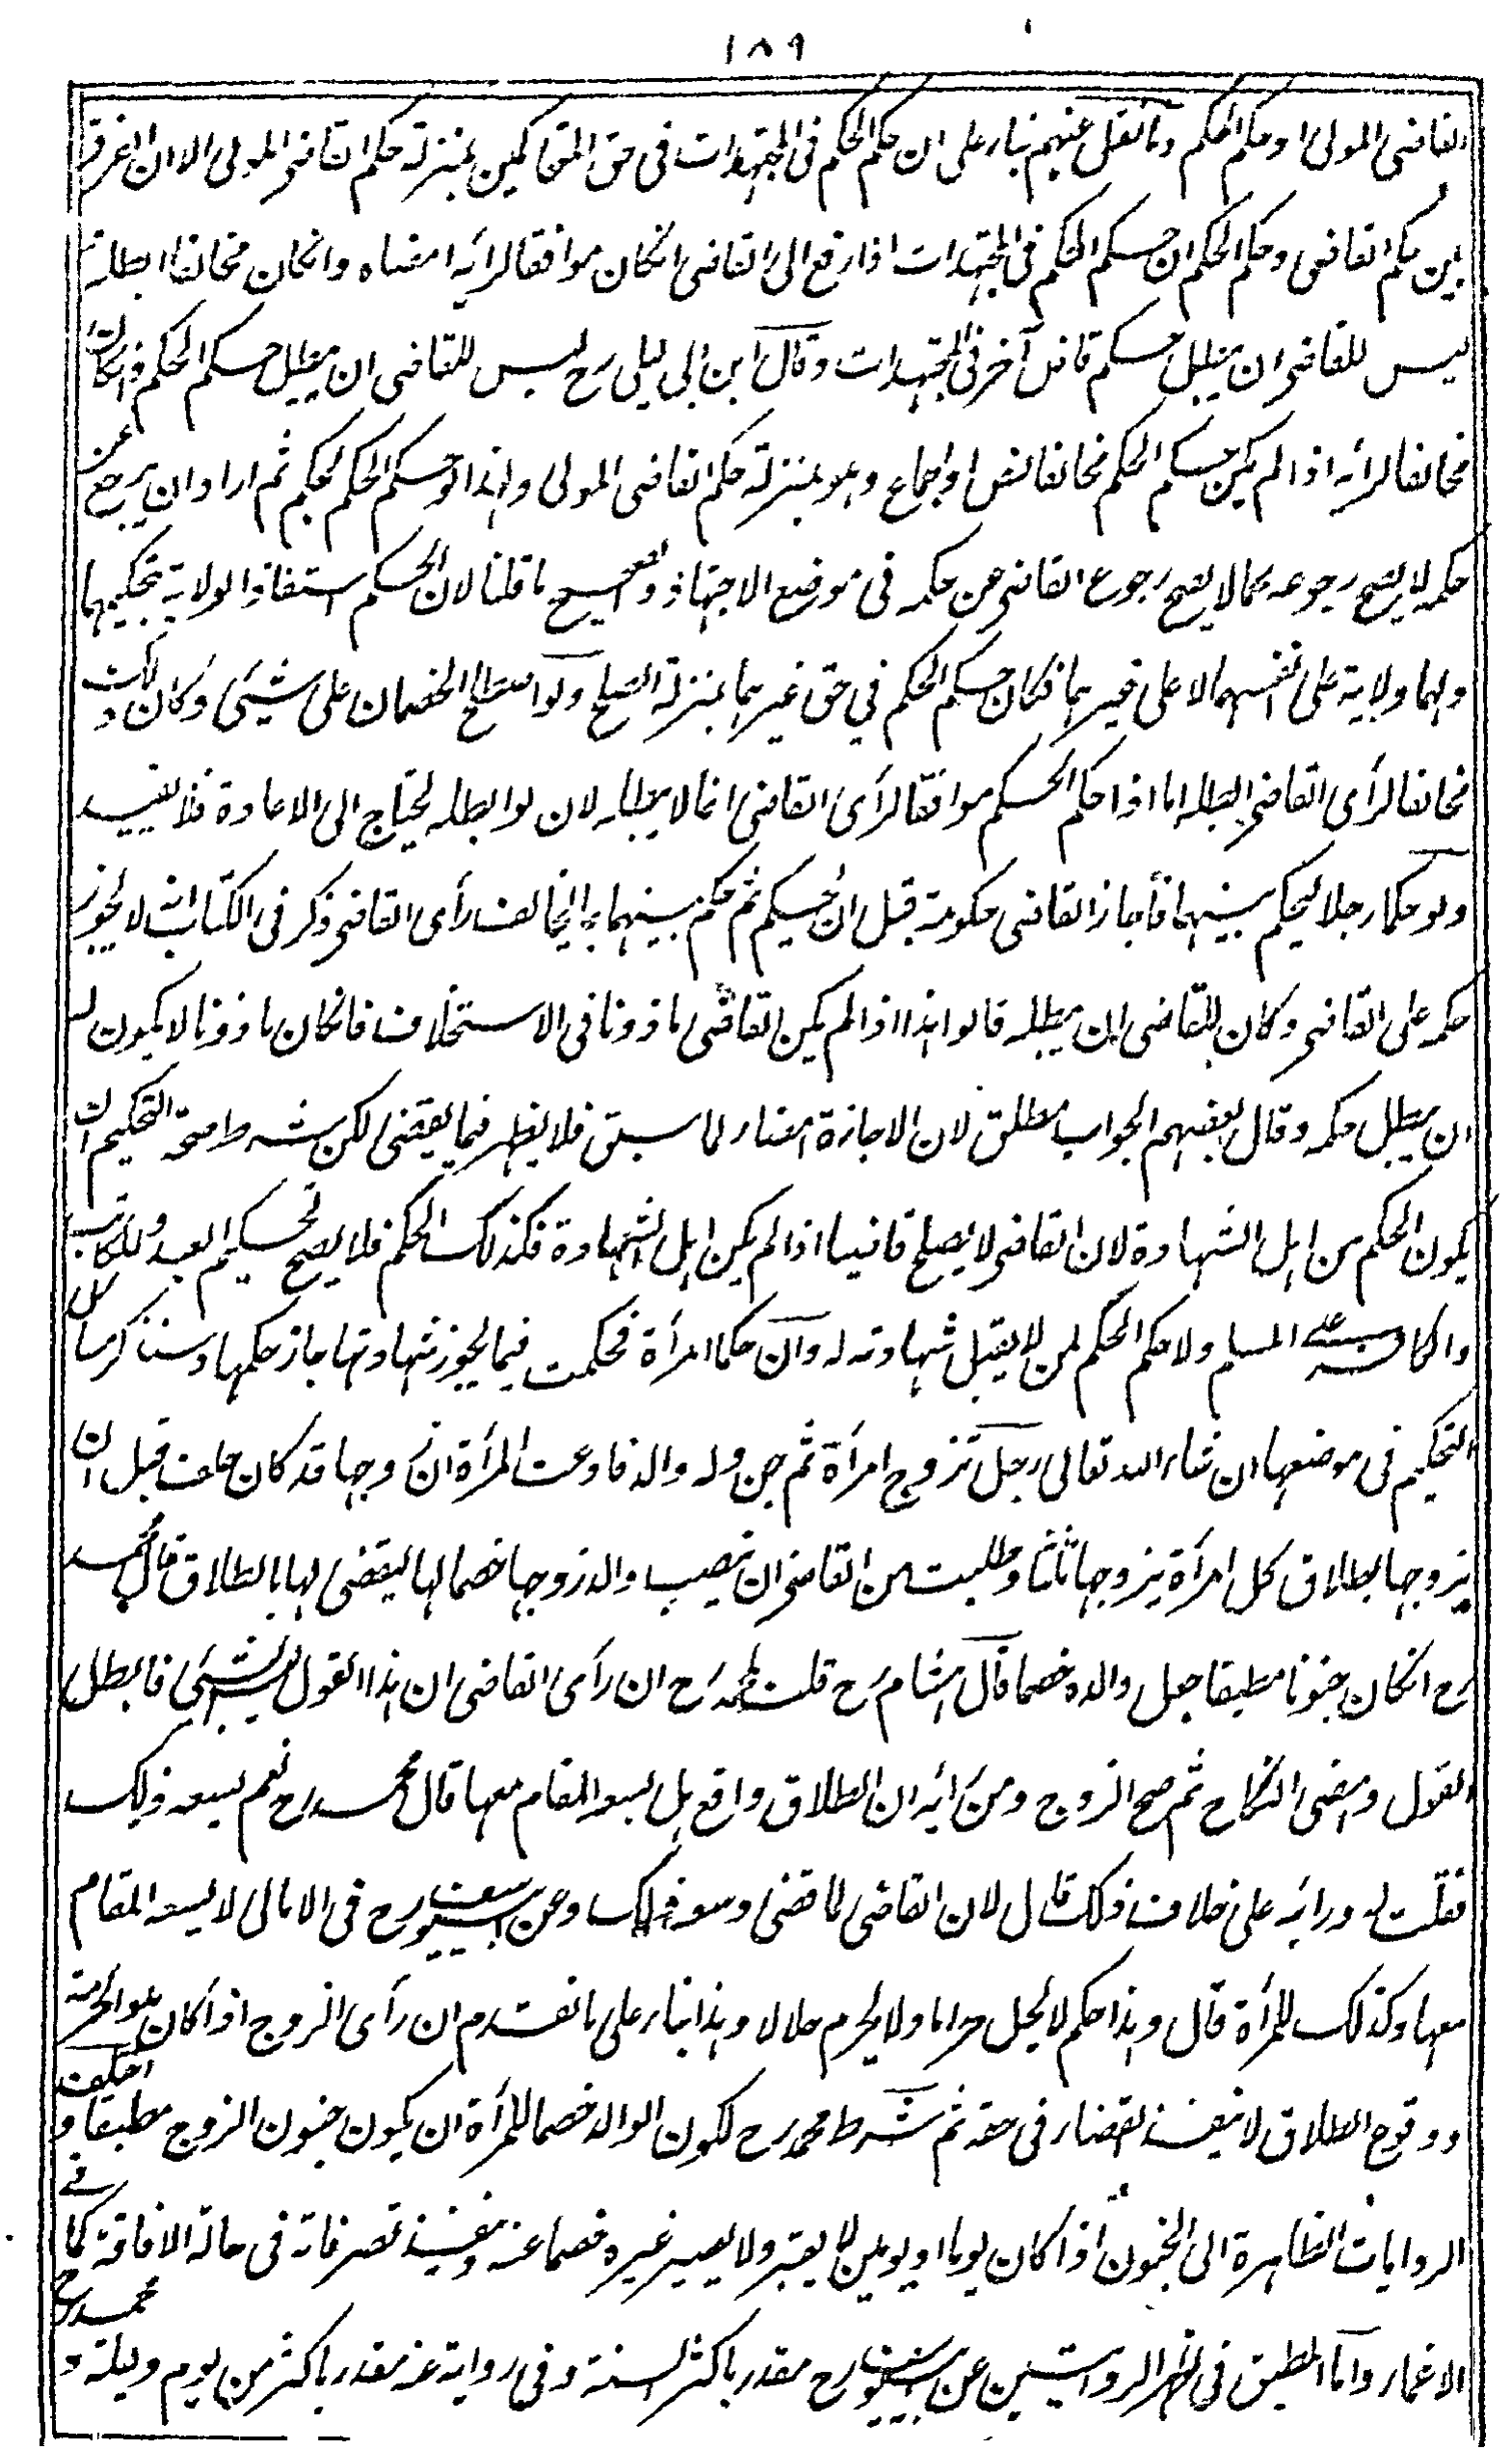 ١٨٩
القاضى المولى او حكم الحكم وما نقل عنهم بناء على ان حكم الحكم فى المجتهدات فى حق المتحاكمين بمنزلة حكم القاضى المولى الا ان الفرق
بين حكم القاضى وحكم الحكم ان حكم الحكم فى المجتهدات اذا رفع الى القاضى انكان موافقا لرأيه امضاه وانكان مخالفا ابطله
ليس للقاضى ان يبطل حكم قاض آخر فى المجتهدات وقال ابن ابى ليلى رح ليس للقاضى ان يبطل حكم الحكم وانكان
مخالفا لرأيه اذا لم يكن حكم الحكم مخالفا لنص او اجماع وهو بمنزلة حكم القاضى المولى ولهذا لو حكم الحكم بحكم ثم اراد ان يرجع عن
حكمه لا يصح رجوعه كما لا يصح رجوع القاضى عن حكمه فى موضع الاجتهاد والصحيح ما قلنا لان الحكم استفاد الولاية بتحكيمهما
ولهما ولاية على انفسهما لا على غيرهما فكان حكم الحكم في حق غيرهما بمنزلة الصلح ولو اصطلح الخصمان على شيئ وكان ذلك
مخالفا لرأى القاضى ابطله اما اذا حكم الحكم موافقا لرأى القاضى انما لا يبطله لان لو ابطله يحتاج الى الاعادة فلا يفيد
ولو حكما رجلا ليحكم بينهما فأجاز القاضى حكومته قبل ان يحكم ثم حكم بينهما بما يخالف رأى القاضى ذكر فى الكتاب انه لا يجوز
حكمه على القاضى وكان للقاضى ان يبطله قالوا هذا اذا لم يكن القاضى ماذونا فى الاستخلاف فانكان ماذونا لا يكون له
ان يبطل حكمه وقال بعضهم الجواب مطلق لان الاجازة امضاء لما سبق فلا يظهر فيما يقضى لكن شرط صحة التحكيم ان
يكون الحكم من اهل الشهادة لان القاضى لا يصلح قاضيا اذا لم يكن اهل الشهادة فكذلك الحكم فلا يصح تحكيم العبد والمكاتب
والكافر على المسلم ولا حكم الحكم لمن لا يقبل شهادته له وان حكما امرأة فحكمت فيما يجوز شهادتها جاز حكمها وسنذكر مسائل
التحكيم فى موضعها ان شاء الله تعالى رجل تزوج امرأة ثم جن وله والد فادعت المرأة ان زوجها قد كان حلف قبل ان
يزوجها بطلاق كل امرأة يزوجها ثلثا وطلبت من القاضى ان ينصب والد زوجها خصما لها ليقضى لها بالطلاق قال محمد
رح انكان جنونا مطبقا جعل والده خصما قال هشام رح قلت لمحمد رح ان رأى القاضى ان هذا القول ليس بشيئ فابطل
القول وامضى النكاح ثم صح الزوج ومن رأيه ان الطلاق واقع هل يسعه المقام معها قال محمد رح نعم يسعه ذلك
فقلت له ورأيه على خلاف ذلك قال لان القاضى لما قضى وسعه ذلك وعن ابى يوسف رح فى الامالى لا يسعه المقام
معها وكذلك المرأة قال وهذا حكم لا يحل حراما ولا يحرم حلالا وهذا بناء على ما تقدم ان رأى الزوج اذا كان هو الحرمة
ووقوع الطلاق لا ينفذ القضاء فى حقه ثم شرط محمد رح لكون الوالد خصما للمرأة ان يكون جنون الزوج مطبقا واختلفت
الروايات الظاهرة الى الجنون اذا كان يوما او يومين لا يعتبر ولا يصير غيره خصما عنه وينفذ تصرفاته فى حالة الافاقة كما فى
الاغماء واما المطبق فى اظهر الروايتين عن ابى يوسف رح مقدر باكثر السنة وفى رواية عنه مقدر باكثر من يوم وليلة و محمد رح